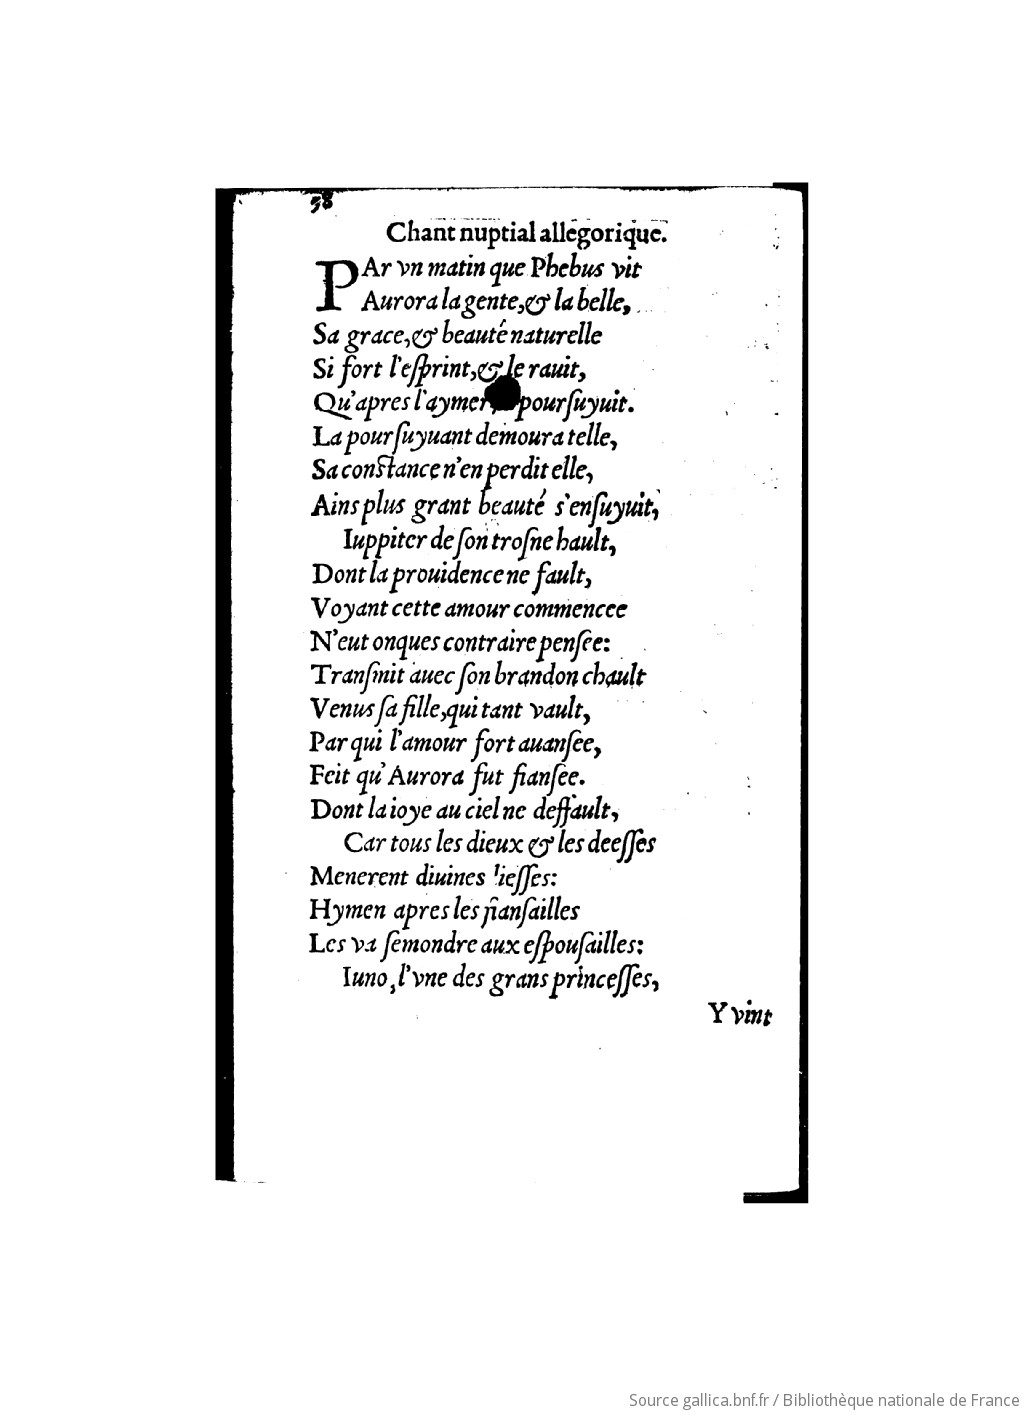 58
Chant nuptial allegorique.
PAr vn matin que Phebus vit
Aurora la gente, & la belle,
Sa grace, & beauté naturelle
Si fort l'eſprint, & le rauit,
Qu'apres l'aymer, pourſuyuit.
La pourſuyuant demoura telle,
Sa conſtance n'en perdit elle,
Ains plus grant beauté s'enſuyuit,
Iuppiter de ſon troſne hault,
Dont la prouidence ne fault,
Voyant cette amour commencee
N'eut onques contraire penſee:
Tranſmit auec ſon brandon chault
Venus ſa fille, qui tant vault,
Par qui l'amour fort auanſee,
Feit qu'Aurora fut fianſee.
Dont la ioye au ciel ne deffault,
Car tous les dieux & les deeſſes
Menerent diuines lieſſes:
Hymen apres les fianſailles
Les va ſemondre aux eſpouſailles:
Iuno, l'vne des grans princeſſes,
Y vint
Source gallica.bnf.fr / Bibliothèque nationale de France